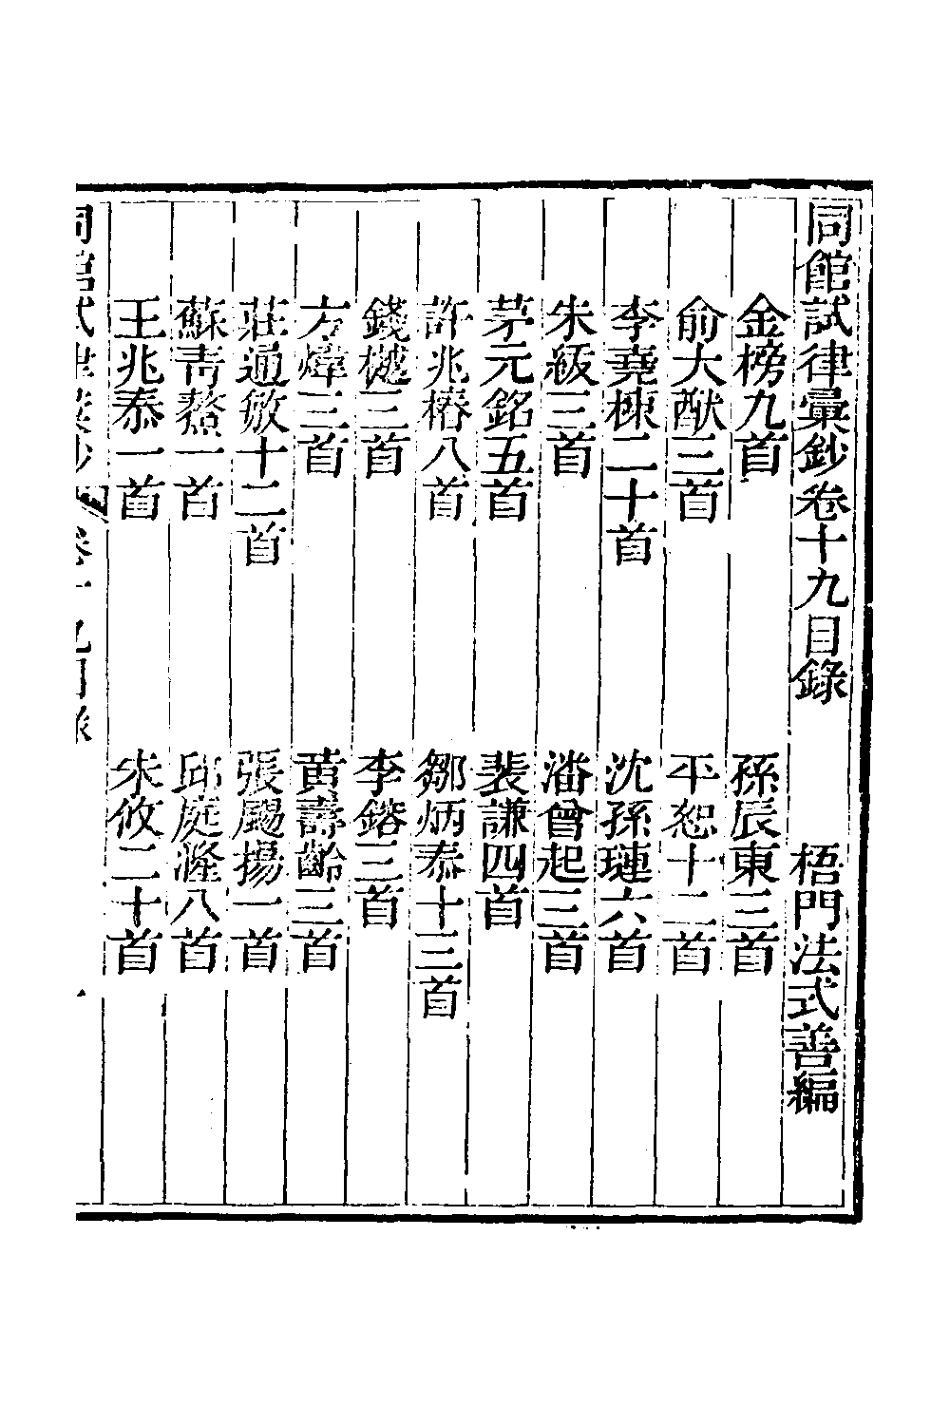 同館試律彙鈔卷十九目錄 梧門法式善編
金榜九首 孫辰東三首
俞大猷三首 平恕十二首
李堯棟二十首 沈孫璉六首
朱紱三首 潘曾起三首
茅元銘五首 裴謙四首
許兆椿八首 鄒炳泰十三首
錢樾三首 李鎔三首
方煒三首 黃壽齡三首
莊通敏十二首 張颺揚一首
蘇青鰲一首 邱庭漋八首
王兆泰一首 朱攸二十首
同館試律彙鈔 卷十九目錄 一